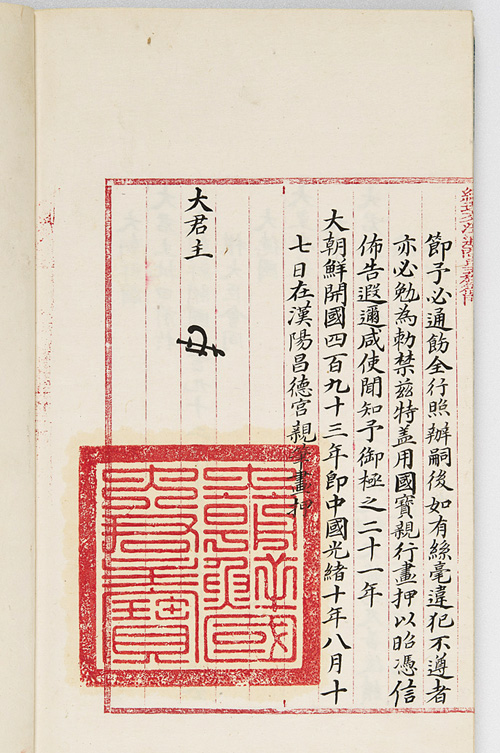 節予必通飭全行照辦嗣後如有絲毫違犯不遵者
亦必勉為勅禁兹特盖用國寶親行畫押以昭憑信
佈告遐邇咸使聞知予御極之二十一年
大朝鮮開國四百九十三年即中國光緒十年八月十
七日在漢陽昌德宮親筆畫押
大君主
大朝鮮國
大君主寶